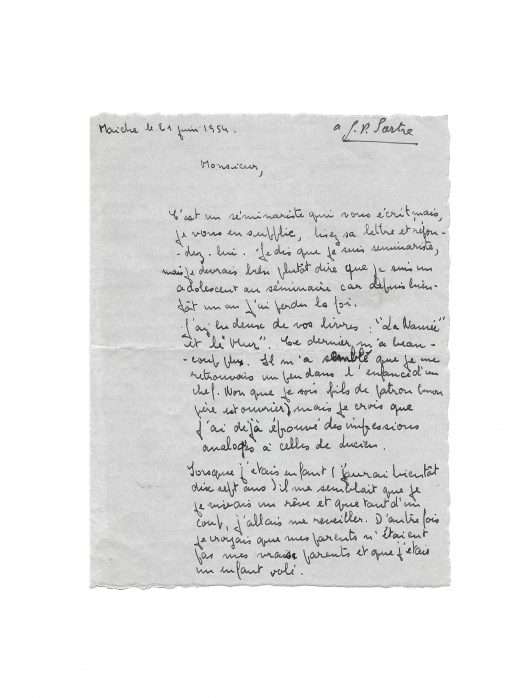 Maiche le 21 juin 1954.
a J. P. Sartre
Monsieur,
C'est un séminariste qui vous écrit mais,
je vous en supplie, lisez sa lettre et répon-
-dez-lui. Je dis que je suis séminariste,
mais je devrais bien plutôt dire que je suis un
adolescent au séminaire car depuis bien-
tôt un an j'ai perdu la foi.
J'ai lu deux de vos livres : "La Nausée"
et le "Mur". Ce dernier m'a beau-
-coup plu. Il m'a semblé que je me
retrouvais un peu dans l'enfance d'un
chef. Non que je sois fils de patron (mon
père est ouvrier) mais je crois que
j'ai déjà éprouvé des impressions
analogues à celles de Lucien.
Lorsque j'étais enfant (j'aurai bientôt
dix sept ans) il me semblait que je
je vivais un rêve et que tout d'un
coup, j'allais me reveiller. D'autre fois
je croyais que mes parents n'étaient
pas mes vrais parents et que j'étais
un enfant volé.